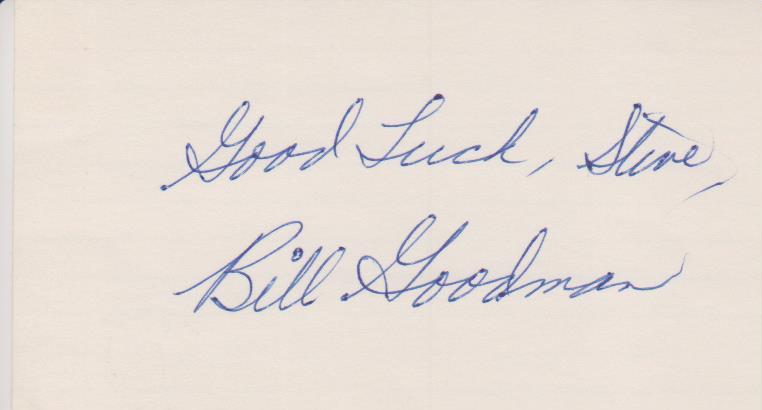 Good Luck, Steve,
Bill Goodman